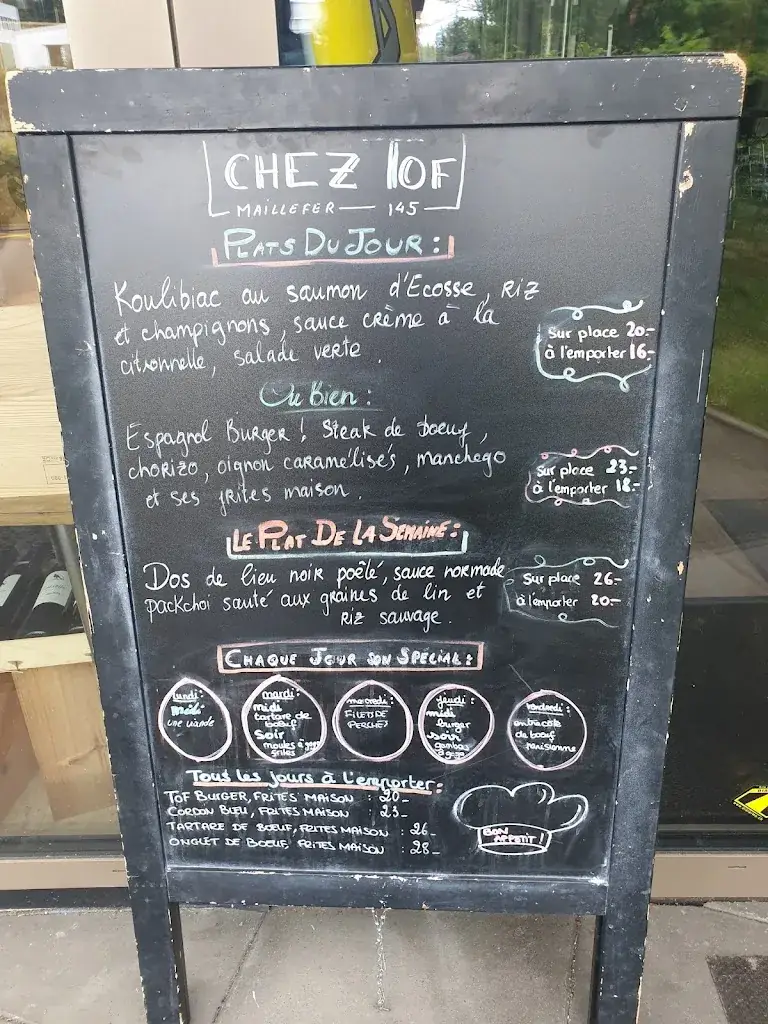 CHEZ TOF
MAILLEFER 145
PLATS DU JOUR :
Koulibiac au saumon d'Ecosse, RIZ
et champignons, sauce crème à la
citronnelle, salade verte.
Sur place 20.-
à l'emporter 16.-
Ou Bien :
Espagnol Burger ! Steak de boeuf,
chorizo, oignon caramélisés, manchego
et ses frites maison.
Sur place 23.-
à l'emporter 18.-
LE PLAT DE LA SEMAINE :
Dos de lieu noir poêlé, sauce normade
packchoi sauté aux graines de lin et
Riz sauvage.
Sur place 26.-
à l'emporter 20.-
CHAQUE JOUR SON SPÉCIAL :
lundi :
midi
une viande
mardi :
midi
tartare de
boeuf
Soir
moules à gogo
frites
mercredi :
FILET DE
PERCHES
jeudi :
midi
burger
soir
gambas
à gogo
vendredi :
entrecôte
de boeuf
parisienne
Tous les jours à l'emporter :
TOF BURGER, FRITES MAISON : 20.-
CORDON BLEU, FRITES MAISON 23.-
TARTARE DE BOEUF, FRITES MAISON : 26.-
ONGLET DE BOEUF, FRITES MAISON : 28.-
BON
APPÉTIT !